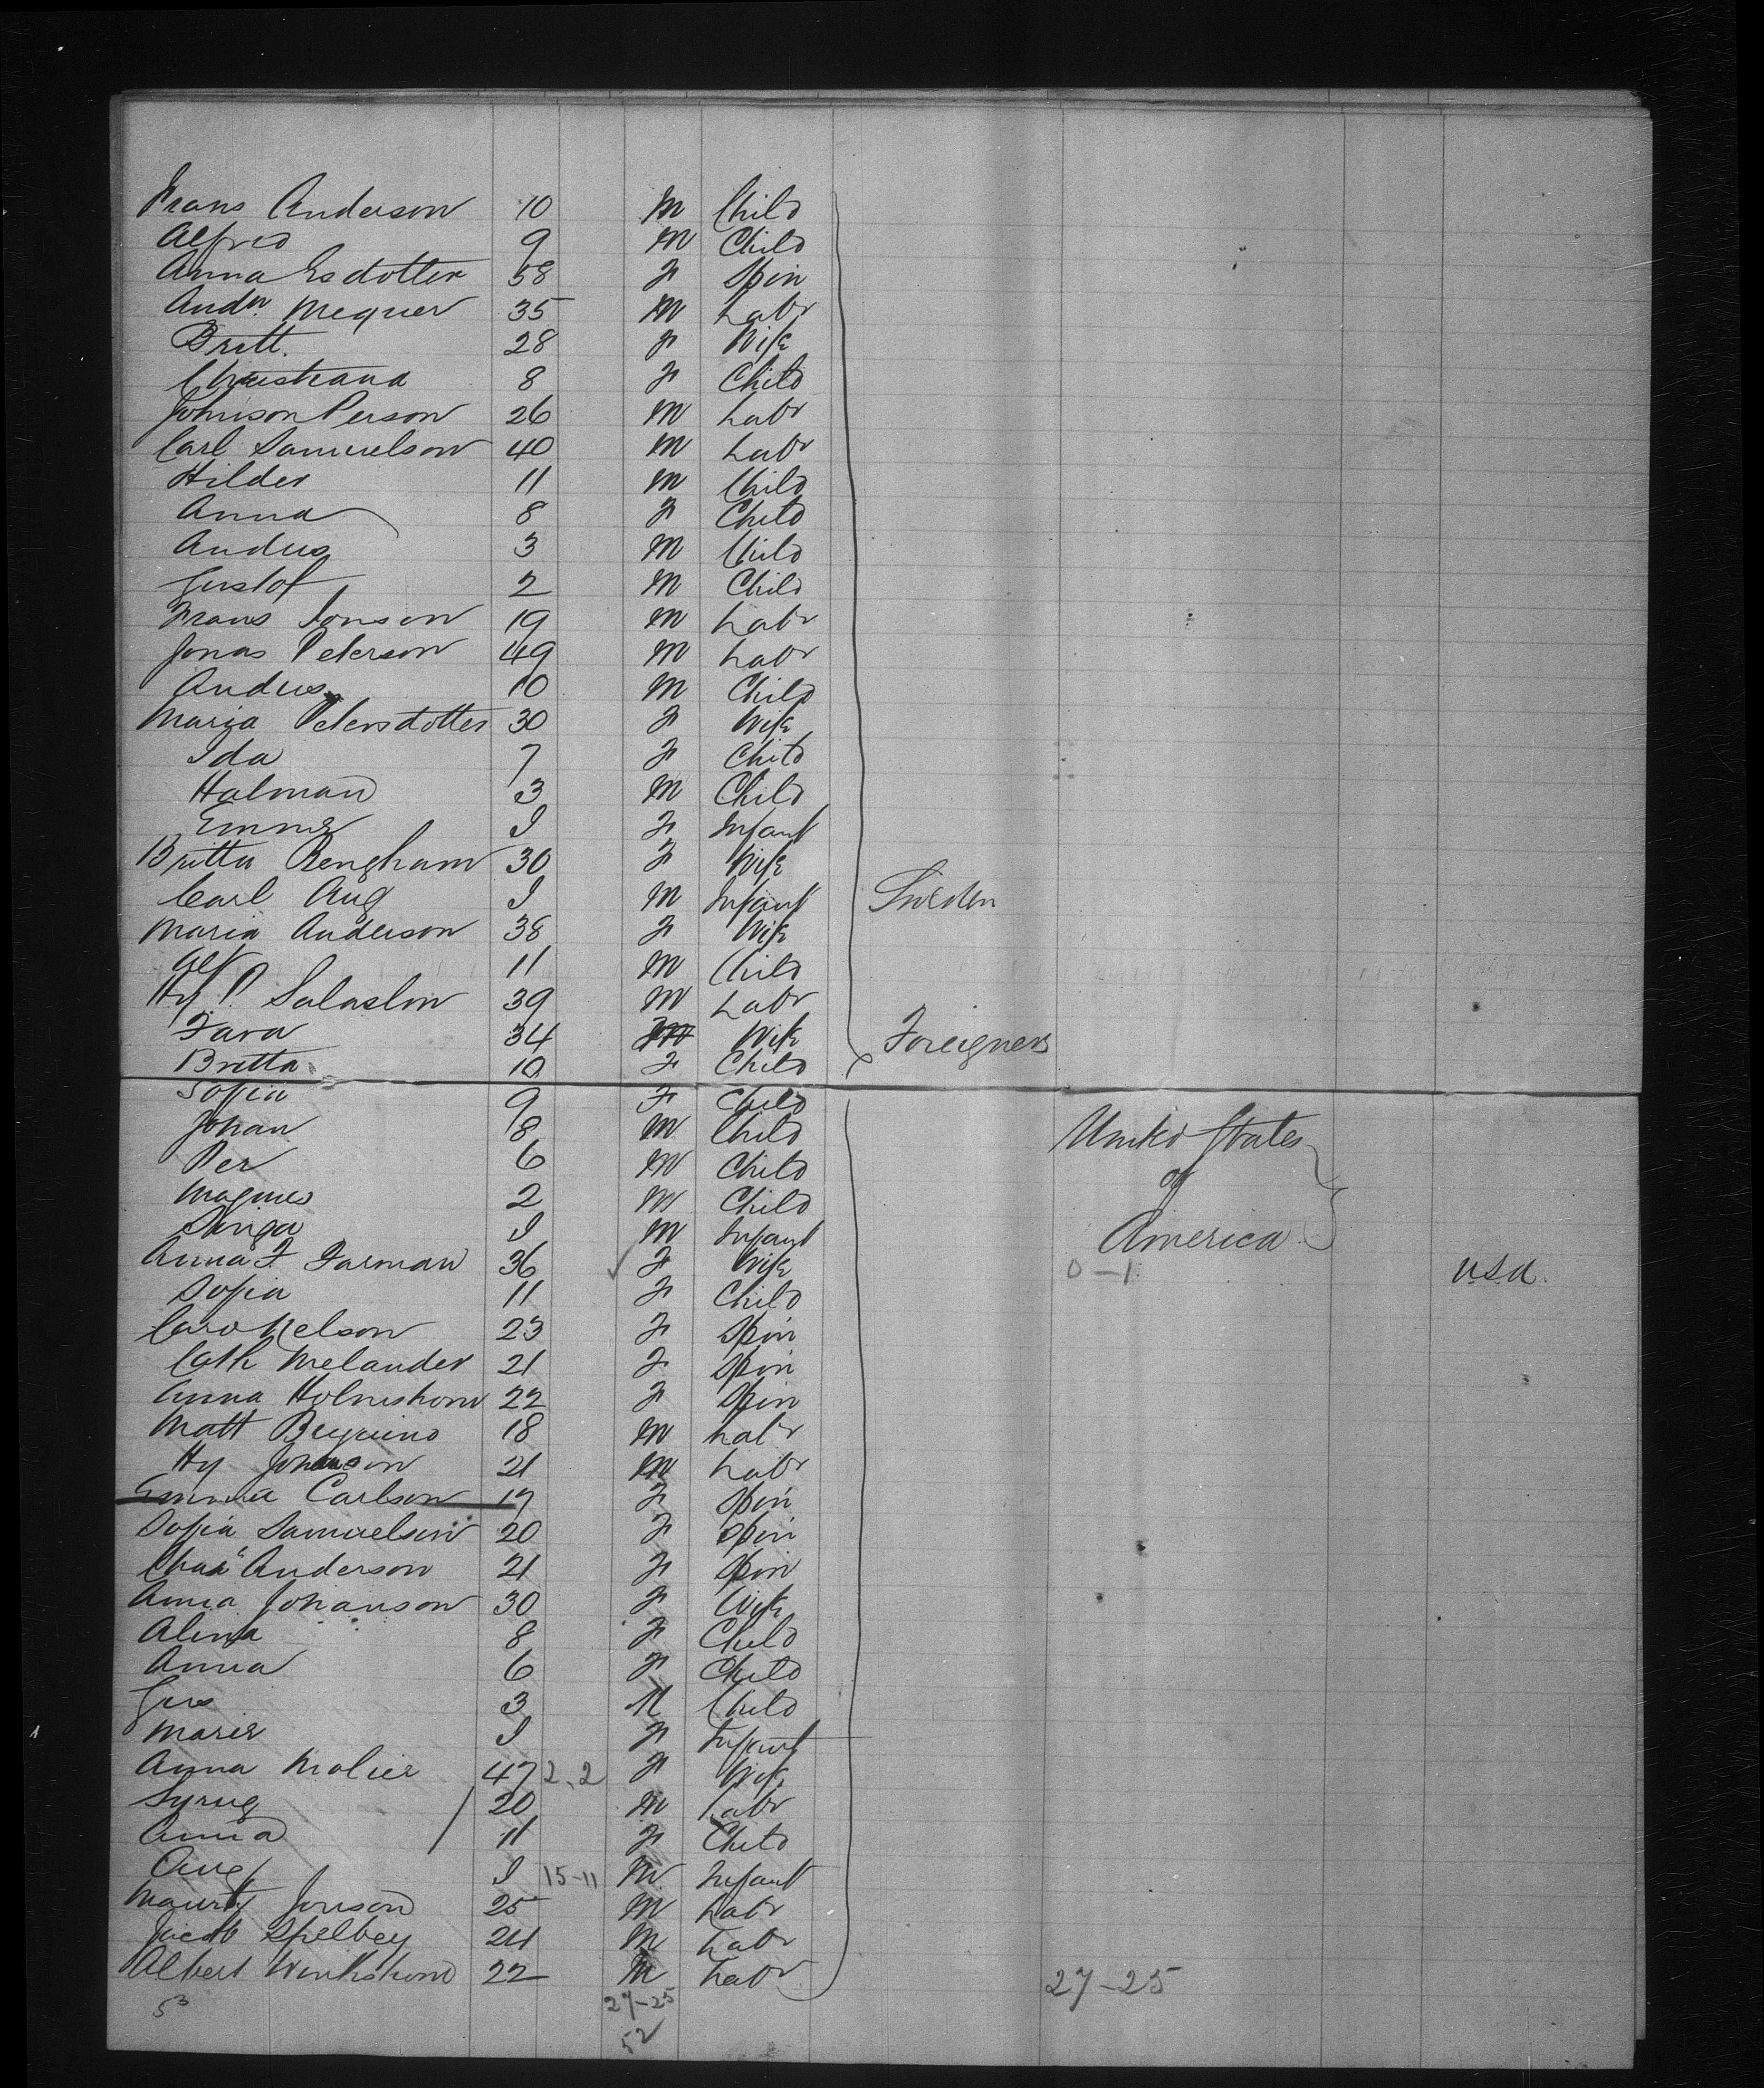 Frans Anderson 10 M Child
Alfred 9 M Child
Anna Esdotter 58 F Spin
Andw. Mequer 35 M Labr
Britt. 28 F Wife
Christiana 8 F Child
Johnson Person 26 M Labr
Carl Samuelson 40 M Labr
Hilder 11 M Child
Anna 8 F Child
Andres 3 M Child
Gustof 2 M Child
Frans Jonson 19 M Labr
Jonas Peterson 49 M Labr
Andres 10 M Child
Maria Petersdotter 30 F Wife
Ida 7 F Child
Halman 3 M Child
Emma I F Infant
Britta Bengham 30 F Wife
Carl Aug I M Infant Sweden
Maria Anderson 38 F Wife
Alf 11 M Child
Hy P. Salaslon 39 M Labr
Fava 34 Wife Foreigners
Britta 10 F Child
Sofia 9 F Child
Johan 8 M Child United States
Per 6 M Child of
Magnus 2 M Child
I M Infant America
Anna F Farman 36 F Wife 0-1 USA.
Sofia 11 F Child
Caro Nelson 23 F Spin
Cath Melander 21 F Spin
Anna Holmstrom 22 F Spin
Matt 18 M Labr
Hy Johnson 21 M Labr
Emma Carlson 19 F Spin
Sofia Samuelson 20 F Spin
Chas Anderson 21 F Spin
Anna Johanson 30 F Wife
Alina 8 F Child
Anna 6 F Child
Gus 3 M Child
Maria I F Infant
Anna Molier 47 2,2 F Wife
20 M Labr
Anna 11 F Child
Aug I 15-11 M Infant
Maurty Jonson 25 M Labr
Jacob Spelbey 24 M Labr
Albert 22 M Labr
53 27-25 27-25
52